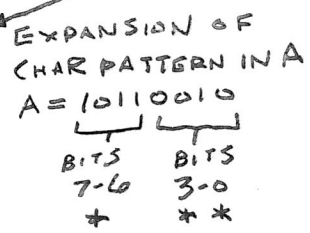 EXPANSION OF
CHAR PATTERN IN A
A = 10110010
BITS BITS
7-6 3-0
* * *